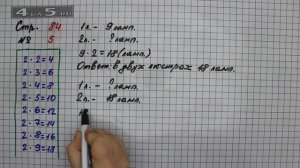 4____5.RU
Стр. 84
№ 5
2 · 2 = 4
2 · 3 = 6
2 · 4 = 8
2 · 5 = 10
2 · 6 = 12
2 · 7 = 14
2 · 8 = 16
2 · 9 = 18
1л. - 9 ламп.
2л. - ? ламп.
9 · 2 = 18 (ламп.)
Ответ: в двух люстрах 18 ламп.
1л. - ? ламп.
2л. - 18 ламп.
18